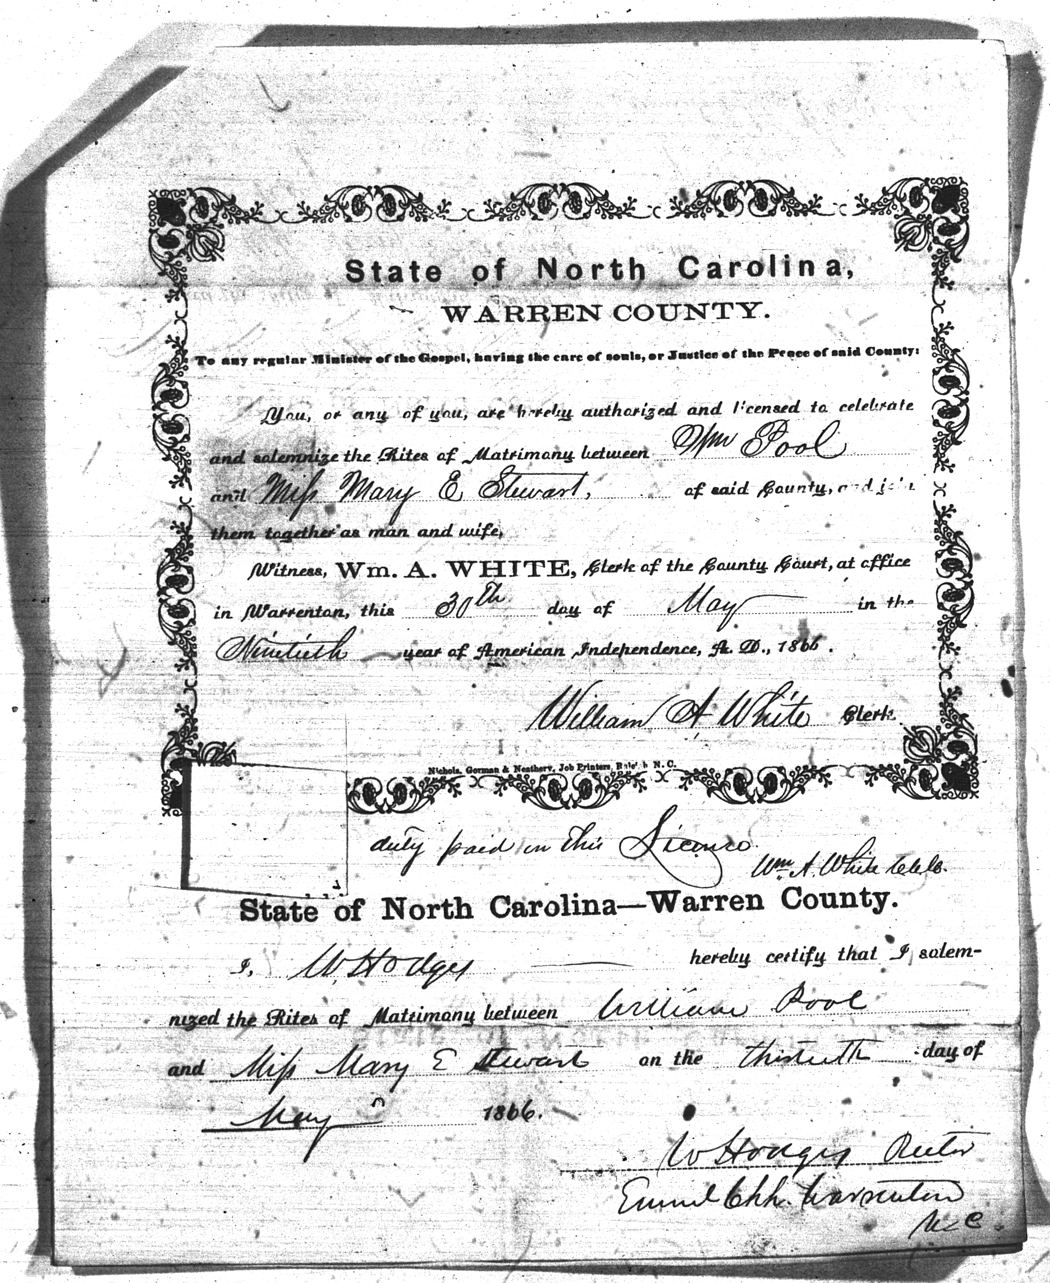 State of North Carolina,
WARREN COUNTY.
To any regular Minister of the Gospel, having the care of souls, or Justice of the Peace of said County:
You, or any of you, are hereby authorized and licensed to celebrate
and solemnize the Rites of Matrimony between Wm Pool
and Miss Mary E Stewart, of said County, and join
them together as man and wife,
Witness, Wm. A. WHITE, Clerk of the County Court, at office
in Warrenton, this 30th day of May in the
Ninetieth year of American Independence, A. D., 1866.
William A White Clerk.
Nichols, Gorman & Neathery, Job Printers, Raleigh N. C.
duty paid on this License.
Wm A. White Clk.
State of North Carolina—Warren County.
I, W Hodges hereby certify that I solem-
nized the Rites of Matrimony between William Pool
and Miss Mary E Stewart on the day of
May 1866.
W Hodges Rector
Emml Chh. Warrenton
N C.